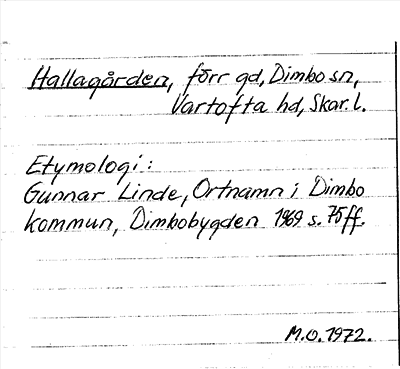 Hallagården, förr gd, Dimbo sn,
Vartofta hd, Skar. l.
Etymologi:
Gunnar Linde, Ortnamn i Dimbo
kommun, Dimbobygden 1969 s. 75 ff.
M.O. 1972.